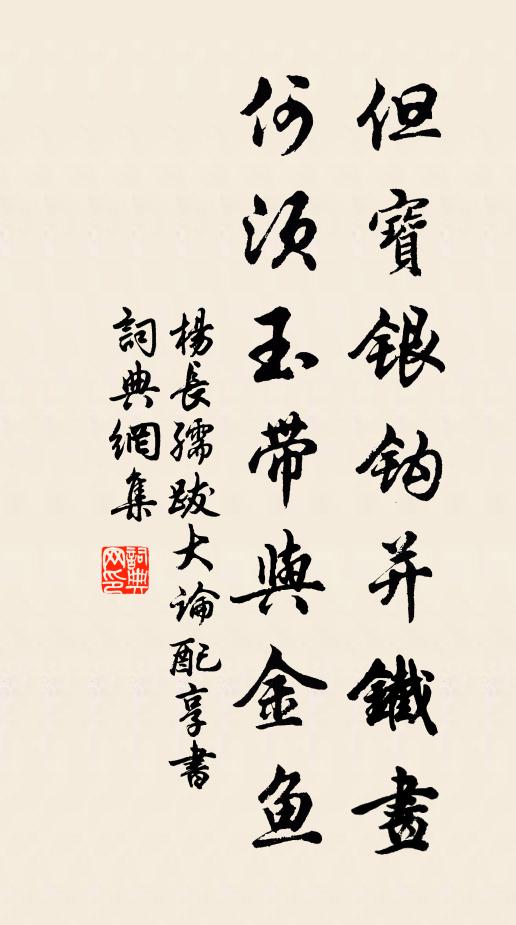 但寶銀鈎并鐵畫
何須玉帶與金魚
楊長孺跋大論配享書
詞典網集
詞典
网印